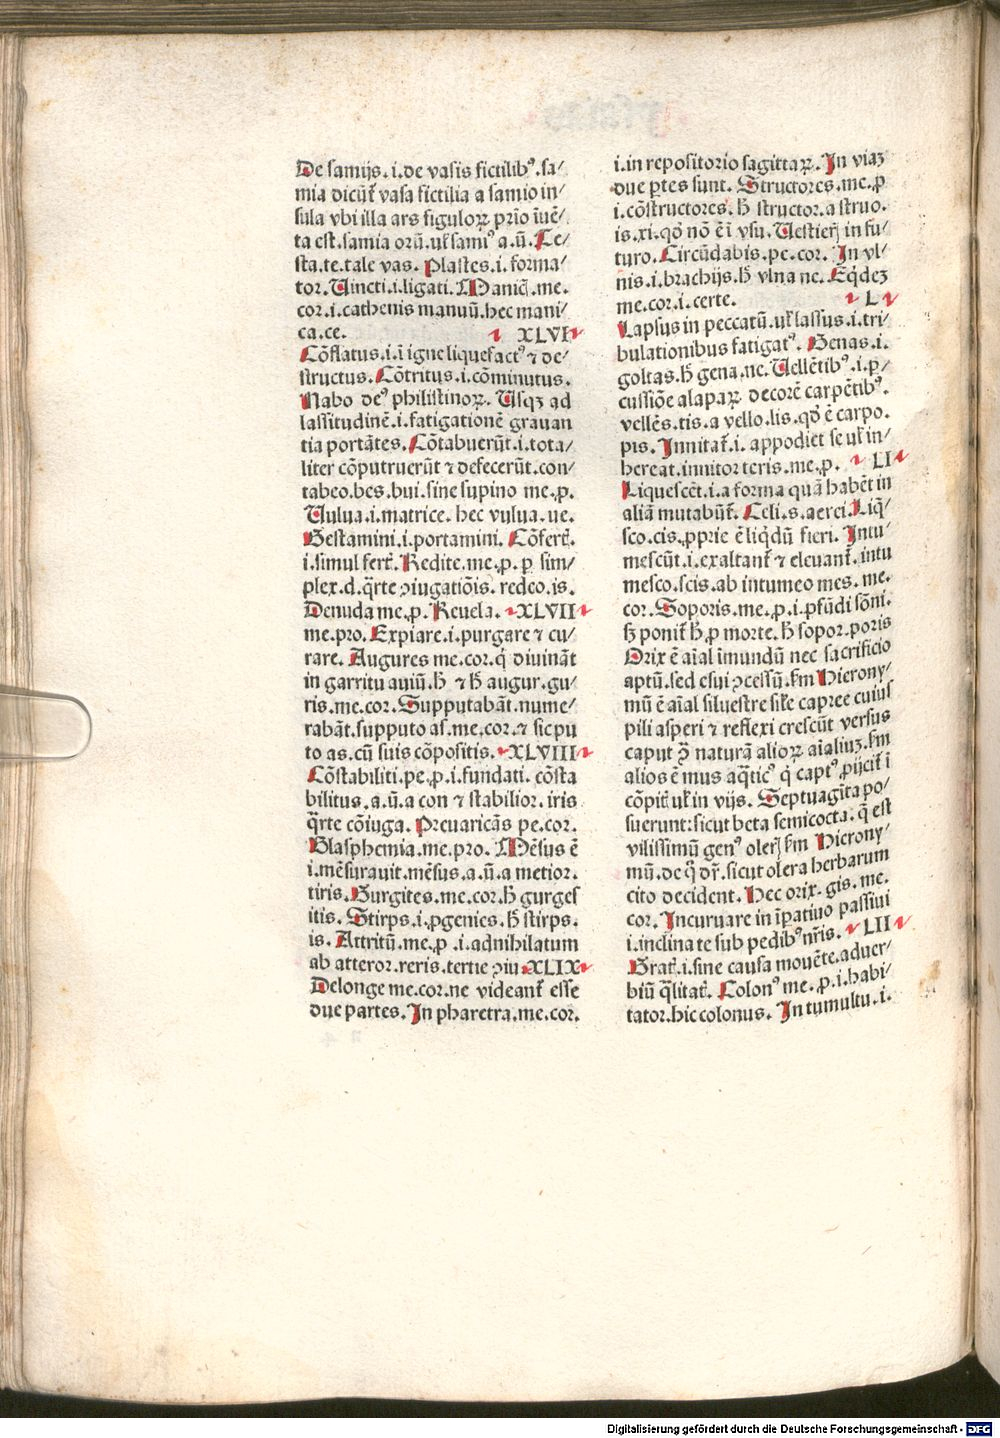 De samijs.i.de vasis fictilibꝰ.sa⸗
mia dicūt̃ vasa fictilia a samio in⸗
sula vbi illa ars figuloꝝ prīo īuē⸗
ta est.samia orū.uł samiꝰ a.ū.Te⸗
sta.te.tale vas. Plastes.i.forma⸗
tor.Uincti.i.ligati. Manicꝭ.me.
cor.i.cathenis manuū.hec mani⸗
ca.ce. XLVI
Cōflatus.i.ī igne liquefactꝰ ⁊ de⸗
structus. Cōtritus.i.cōminutus.
Nabo deꝰ philistinoꝝ. Usqꝫ ad
lassitudinē.i.fatigationē grauan
tia portātes. Cōtabuerūt.i.tota⸗
liter cōputruerūt ⁊ defecerūt.con⸗
tabeo.bes.bui.sine supino me.ꝓ.
Uulua.i.matrice. hec vulua.ue.
Gestamini.i.portamini. Cōfert̃.
i.simul fert̃. Redite.me.ꝓ.ꝑ sim⸗
plex.d.q̄rte ꝯiugatiōis.redeo.is.
Denuda me.ꝓ. Reuela. XLVII
me.pro. Expiare.i.purgare ⁊ cu⸗
rare. Augures me.cor.q̇ diuināt
in garritu auiū.ħ ⁊ ħ augur.gu⸗
ris.me.cor. Supputabāt.nume⸗
rabāt.supputo as.me.cor.⁊ sic pu
to as.cū suis cōpositis. XLVIII
Cōstabiliti.pe.ꝓ.i.fundati. cōsta
bilitus.a.ū.a con ⁊ stabilior.iris
q̄rte cōiuga. Preuaricās pe.cor.
Blasphemia.me.pro. Mēsus ē
i.mēsurauit.mēsus.a.ū.a metior.
tiris. Gurgites.me.cor.ħ gurges
itis. Stirps.i.ꝓgenies.ħ stirps.
is. Attritū.me.ꝓ.i.adnihilatum
ab atteror.reris.tertie ꝯiu XLIX
Delonge me.cor.ne videant̃ esse
due partes. In pharetra.me.cor.
i.in repositorio sagittaꝝ. In viaꝫ
due ꝑtes sunt. Structores.me.ꝓ
i.cōstructores.ħ structor.a struo.
is.xi.qđ nō ē ī vsu. Uestieris in fu⸗
turo. Circūdabis.pe.cor. In vl⸗
nis.i.brachijs.ħ vlna ne. Eq̇deꝫ
me.cor.i.certe. L
Lapsus in peccatū.uł lassus.i.tri⸗
bulationibus fatigatꝰ. Genas.i.
goltas.ħ gena.ne. Uellētibꝰ.i.ꝑ⸗
cussiōe alapaꝝ decorē carpētibꝰ.
vellēs.tis.a vello.lis.qđ ē carpo.
pis. Innitat̃.i.appodiet se uł in⸗
hereat.innitor teris.me.ꝓ. LI
Liquescēt.i.a forma quā habēt in
aliā mutabūt̃. Celi.s.aerei.Liq̄⸗
sco.cis.ꝓprie ē liq̇dū fieri. Intu
mescūt.i.exaltant̃ ⁊ eleuant̃.intu
mesco.scis.ab intumeo mes.me.
cor. Soporis.me.ꝓ.i.ꝓfūdi sōni.
sꝫ ponit̃ ħ ꝓ morte.ħ sopor.poris
Orix ē aīal īmundū nec sacrificio
aptū.sed esui ꝯcessū.fm Hierony⸗
mū ē aīal siluestre sile capree cuius
pili asperi ⁊ reflexi crescūt versus
caput ꝯ̄ naturā alioꝝ aīaliuꝫ.fm
alios ē mus aq̄ticꝰ q̇ captꝰ ꝓijcit̃ ī
cōpit̃ uł in vijs. Septuagīta po⸗
suerunt:sicut beta semicocta.q̄ est
vilissimū genꝰ oleris fm Hierony⸗
mū.de q̄ dr̃.sicut olera herbarum
cito decident. Hec orix.gis.me.
cor. Incuruare in īpatiuo passiui
i.inclina te sub pedibꝰ nr̄is. LII
Grat̃.i.sine causa mouēte.aduer⸗
biū q̄litat̃. Colonꝰ me.ꝓ.i.habi⸗
tator.hic colonus. In tumultu.i.
Digitalisierung gefördert durch die Deutsche Forschungsgemeinschaft - DFG